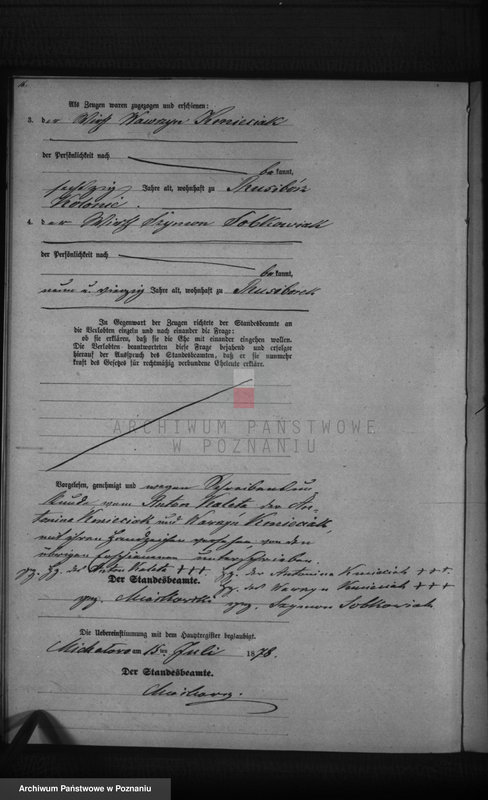 Als Zeugen waren zugezogen und erschienen:
3. der Wirth Wawrzyn Konieciak
der Persönlichkeit nach
be kannt,
sechzig Jahre alt, wohnhaft zu Rusiborz
Kolonie.
4. der Wirth Szymon Sobkowiak
der Persönlichkeit nach
be kannt,
neun u. vierzig Jahre alt, wohnhaft zu Rusiborek
In Gegenwart der Zeugen richtete der Standesbeamte an
die Verlobten einzeln und nach einander die Frage:
ob sie erklären, daß sie die Ehe mit einander eingehen wollen.
Die Verlobten beantworteten diese Frage bejahend und erfolgte
hierauf der Ausspruch des Standesbeamten, daß er sie nunmehr
kraft des Gesetzes für rechtmäßig verbundene Eheleute erkläre.
ARCHIWUM PAŃSTWOWE
W POZNANIU
Vorgelesen, genehmigt und wegen Schreibensun
kunde vom Anton Kaleta der An-
tonina Konieciak und Wawrzyn Konieciak,
mit ihren Handzeichen versehen von den
übrigen Erschienenen unterschrieben.
gez. Hz. des Anton Kaleta +++ Hz. der Antonina Konieciak +++
Hz. des Wawrzyn Konieciak +++
Der Standesbeamte.
gez. gez. Szymon Sobkowiak
Die Uebereinstimmung mit dem Hauptregister beglaubigt.
am 15 ten Juli 1878.
Der Standesbeamte.
Archiwum Państwowe w Poznaniu